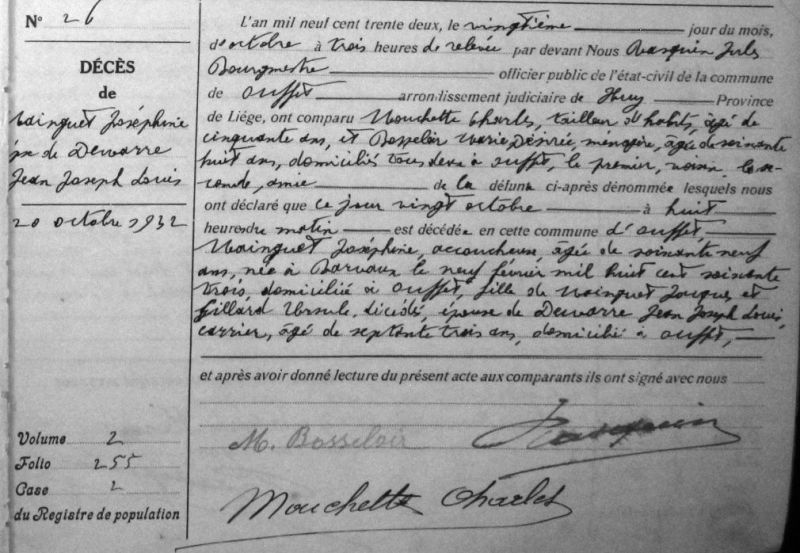 N° 26
DÉCÈS
de
Mainguet Joséphine
ép. de Dewarre
Jean Joseph Louis
20 octobre 1932
Volume 2
Folio 255
Case 2
du Registre de population
L'an mil neuf cent trente deux, le vingtième jour du mois,
d'octobre à trois heures de relevée par devant Nous Rasquin Jules
Bourgmestre officier public de l'état-civil de la commune
de Ouffet arrondissement judiciaire de Huy Province
de Liége, ont comparu Mouchette Charles, tailleur d'habits, âgé de
cinquante ans, et Bosseloir Marie Désirée, ménagère, âgée de soixante
huit ans, domiciliés tous deux à Ouffet, le premier, voisin, la se-
conde, amie de la défunte ci-après dénommée lesquels nous
ont déclaré que ce jour vingt octobre à huit
heures du matin est décédée en cette commune d'Ouffet,
Mainguet Joséphine, accoucheuse, âgée de soixante neuf
ans, née à Barvaux le neuf février mil huit cent soixante
trois, domiciliée à Ouffet, fille de Mainguet Jacques et
Gillard Ursule, décédés, épouse de Dewarre Jean Joseph Louis,
carrier, âgé de septante trois ans, domicilié à Ouffet,
et après avoir donné lecture du présent acte aux comparants ils ont signé avec nous
M. Bosseloir Rasquin
Mouchette Charles